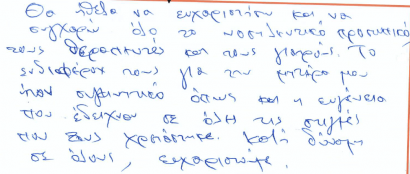 Θα ήθελα να ευχαριστήσω και να
συγχαρώ όλο το νοσηλευτικό προσωπικό,
τους θεράποντες και τους γιατρούς. Το
ενδιαφέρον τους για την μητέρα μου
ήταν συγκινητικό όπως και η ευγένεια
που έδειχναν σε όλη τις στιγμές
που τους χρειάστηκε. Καλή δύναμη
σε όλους, ευχαριστούμε.